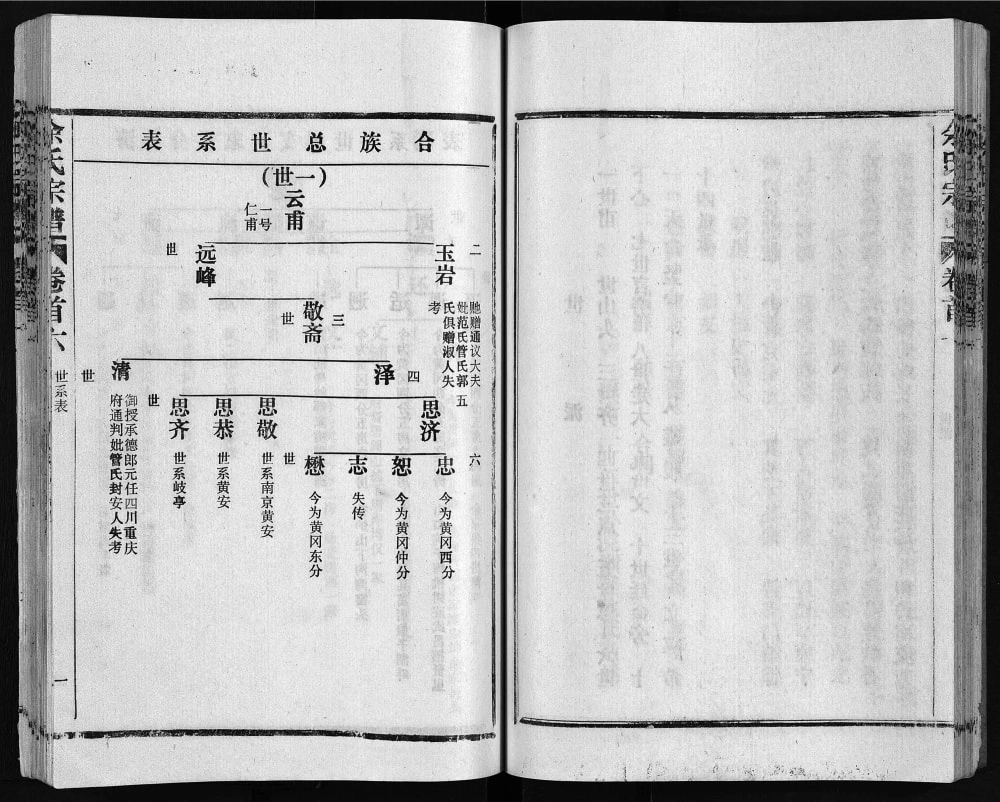 合族总世系表
(一世)
云甫
一号
仁甫
二
玉岩
貤赠通议大夫
妣范氏管氏郭
氏俱赠淑人失
考
远峰
世
三
敬斋
世
四
泽
清
御授承德郎元任四川重庆
府通判妣管氏封安人失考
世
五
思济
思敬
世系南京黄安
思恭
世系黄安
思齐
世系岐亭
世
六
忠
今为黄冈西分
恕
今为黄冈仲分
志
失传
懋
今为黄冈东分
世
余氏宗谱
卷首六
世系表
一
余氏宗
卷首